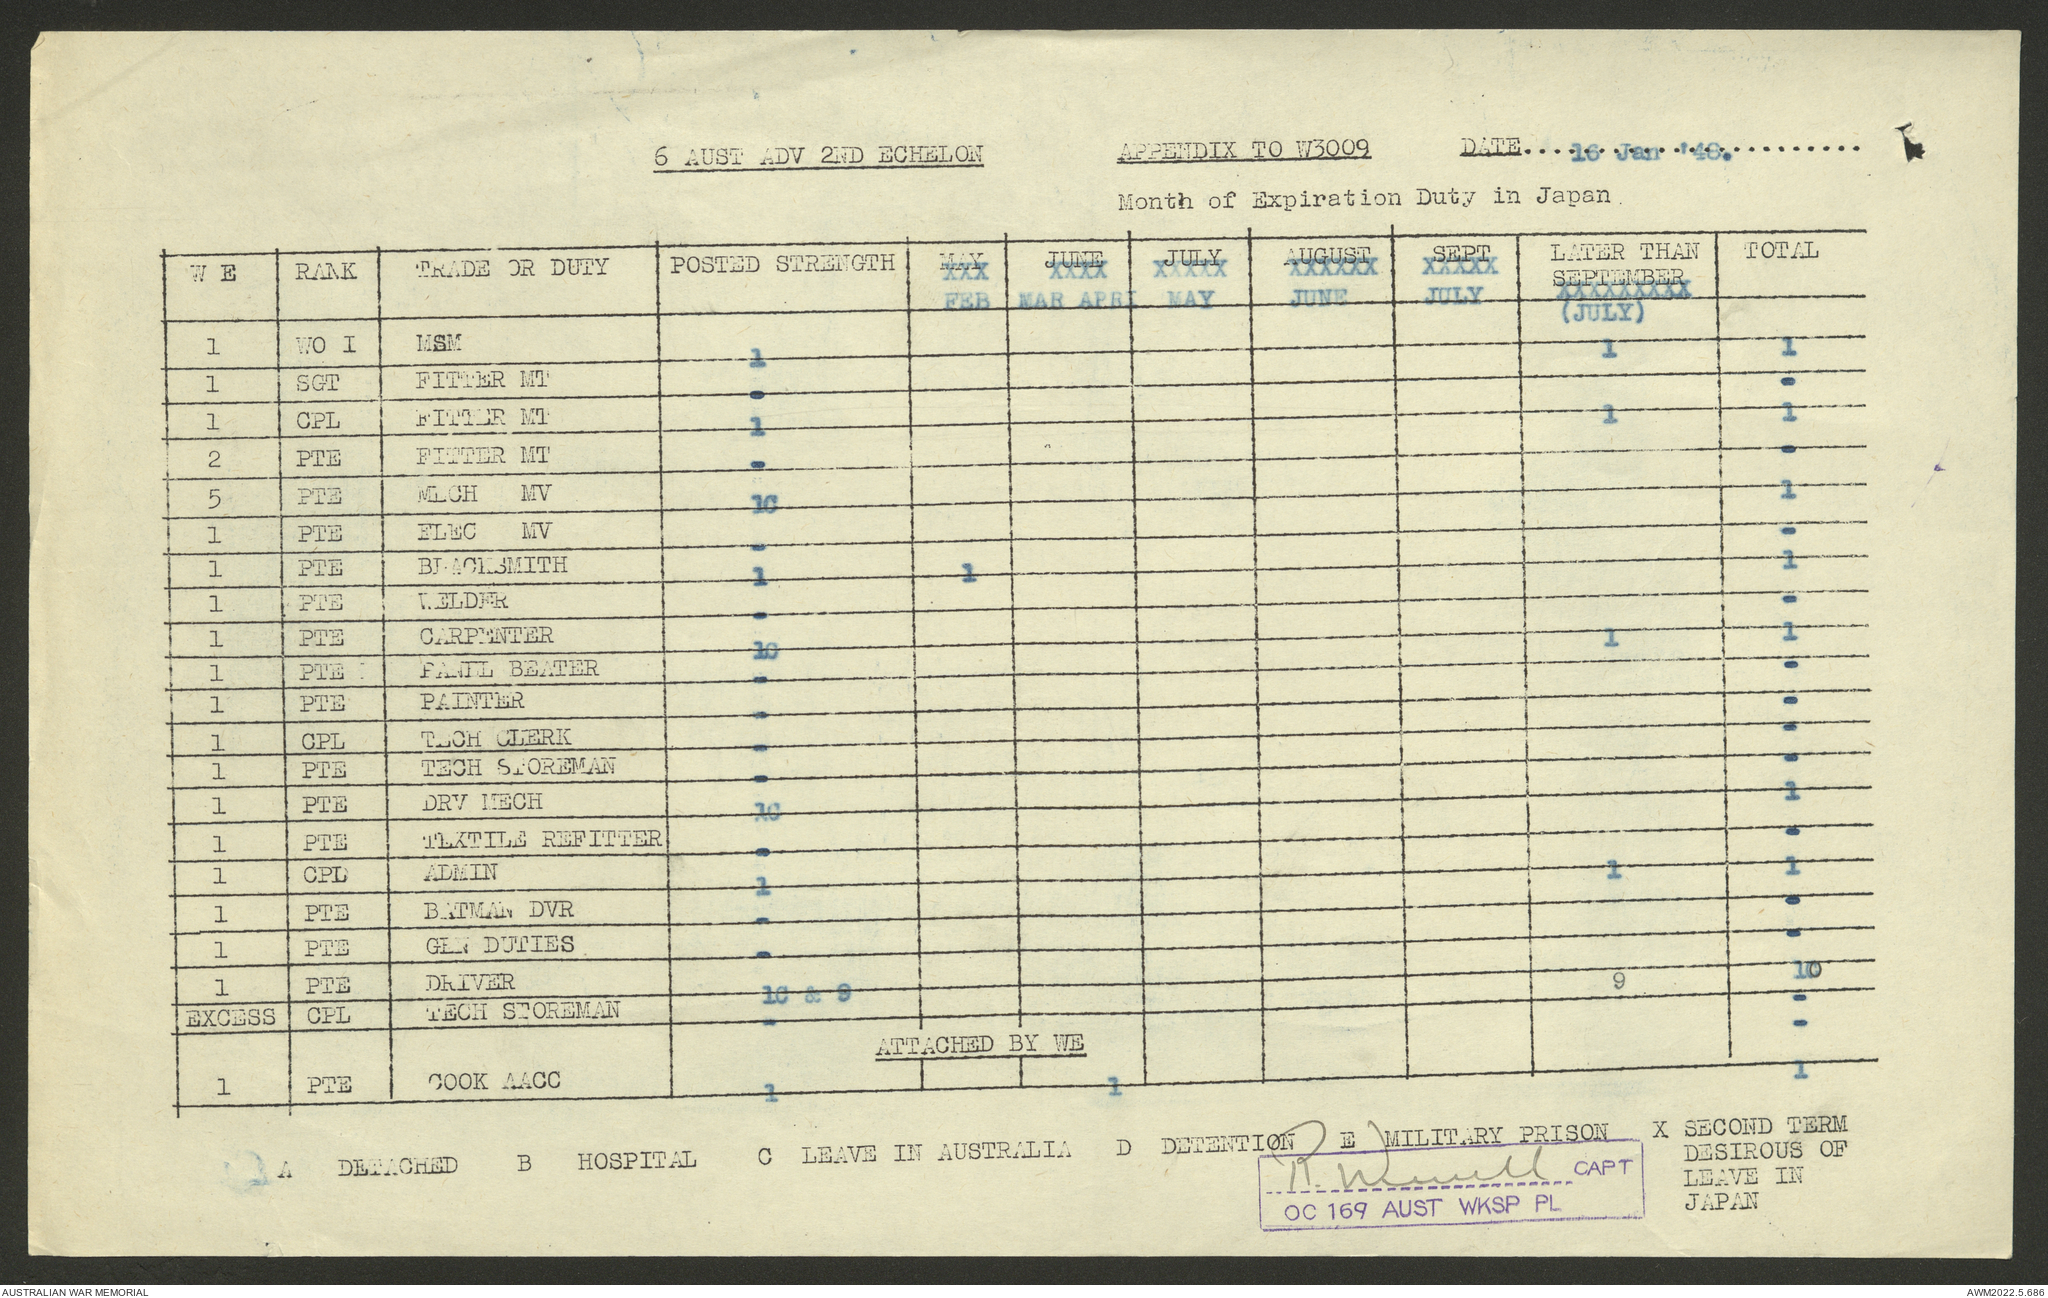 6 AUST ADV 2ND ECHELON APPENDIX TO W3009 DATE 16 Jan '48.
Month of Expiration Duty in Japan
W E RANK TRADE OR DUTY POSTED STRENGTH MAY JUNE JULY AUGUST SEPT LATER THAN SEPTEMBER TOTAL
XXX XXXX XXXXX XXXXXX XXXXX XXXXXXXXX
FEB MAR APRI MAY JUNE JULY (JULY)
1 WO I MSM 1 1 1
1 SGT FITTER MT - -
1 CPL FITTER MT 1 1 1
2 PTE FITTER MT - -
5 PTE MECH MV 1C 1
1 PTE ELEC MV - -
1 PTE BLACKSMITH 1 1 1
1 PTE WELDER - -
1 PTE CARPENTER 1C 1 1
1 PTE PANEL BEATER - -
1 PTE PAINTER - -
1 CPL TECH CLERK - -
1 PTE TECH STOREMAN - -
1 PTE DRV MECH 1C 1
1 PTE TEXTILE REFITTER - -
1 CPL ADMIN 1 1 1
1 PTE BATMAN DVR - -
1 PTE GEN DUTIES - -
1 PTE DRIVER 1C & 9 9 10
-
EXCESS CPL TECH STOREMAN - -
ATTACHED BY WE
1 PTE COOK AACC 1 1 1
A DETACHED B HOSPITAL C LEAVE IN AUSTRALIA D DETENTION E MILITARY PRISON X SECOND TERM
DESIROUS OF
LEAVE IN
JAPAN
R. CAPT
OC 169 AUST WKSP PL
AUSTRALIAN WAR MEMORIAL AWM2022.5.686